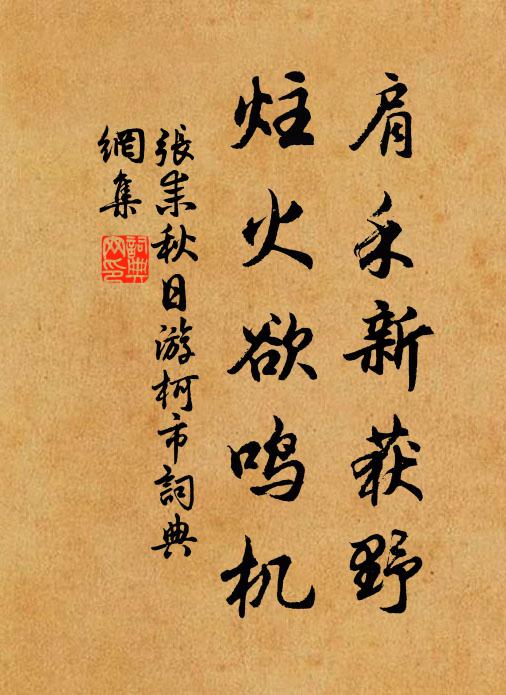 肩禾新获野
炷火欲鸣机
張耒秋日游柯市詞典
網集
詞典
网印